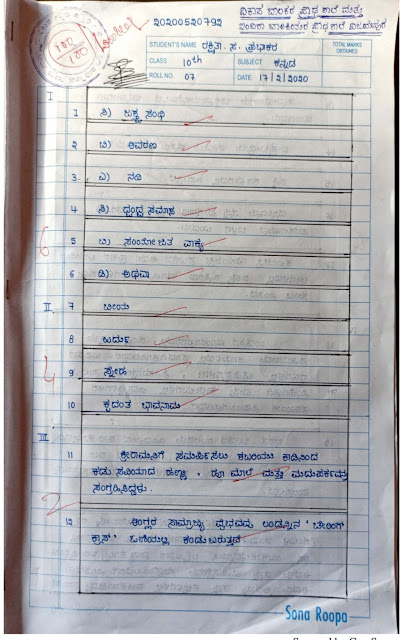 ವಿಕಾಸ ಬಾಲಕರ ಪ್ರೌಢ ಶಾಲೆ ಮತ್ತು
ಬಾಲಕಿಯರ ಪ್ರೌಢ ಶಾಲೆ
20200520792
100
100
STUDENT'S NAME ರಕ್ಷಿತಾ . ಸ . ಪ್ರಭಾಕರ
TOTAL MARKS OBTAINED
CLASS 10th SUBJECT ಕನ್ನಡ
ROLL NO. 07 DATE 17/2/2020
I
1 ಸಂಧಿ
2 ಬ) ಆವರಣ
3. ಎ) ನದಿ
4 ಸಿ) ದ್ವಂದ್ವ ಸಮಾಸ
6
5 ಬ) ಸಂಯೋಜಿತ ವಾಕ್ಯ
6 ಡಿ) ಅಥವಾ
II 7
8
4
9 ಸ್ನೇಹ
10 ಕೃದಂತ ಭಾವನಾಮ
III
11 ಶ್ರೀರಾಮನಿಗೆ ಸಮರ್ಪಿಸಲು ಶಬರಿಯು ಕಾಡಿನಿಂದ
ಸವಿಯಾದ ಹಣ್ಣು , ಹೂ ಮಾಲೆ ಮತ್ತು ಮಧುಪರ್ಕವನ್ನು
ಸಂಗ್ರಹಿಸಿದ್ದಳು .
2
12 ಆಂಗ್ಲರ ಸಾಮ್ರಾಜ್ಯ ವೈಭವವು ಲಂಡನ್ನಿನ ' ಚೇರಿಂಗ್
ಕ್ರಾಸ್ ' ಓಣಿಯಲ್ಲಿ ಕಂಡುಬರುತ್ತದೆ
Sona Roopa